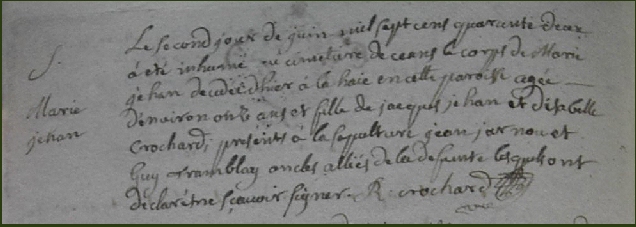 S.
Marie
jehan
Le second jour de juin mil sept cens quarante deux
a été inhumé au cimetiere de ceans le corps de Marie
jehan decedée d'hier à la haie en cette paroisse agée
d'environ onze ans et fille de jacques jehan et d'isabelle
Crochard, presents à la sepulture jean jarnouet
Guy Tramblay oncles alliés de la defunte lesquels ont
declaré ne sçavoir signer. R crochard